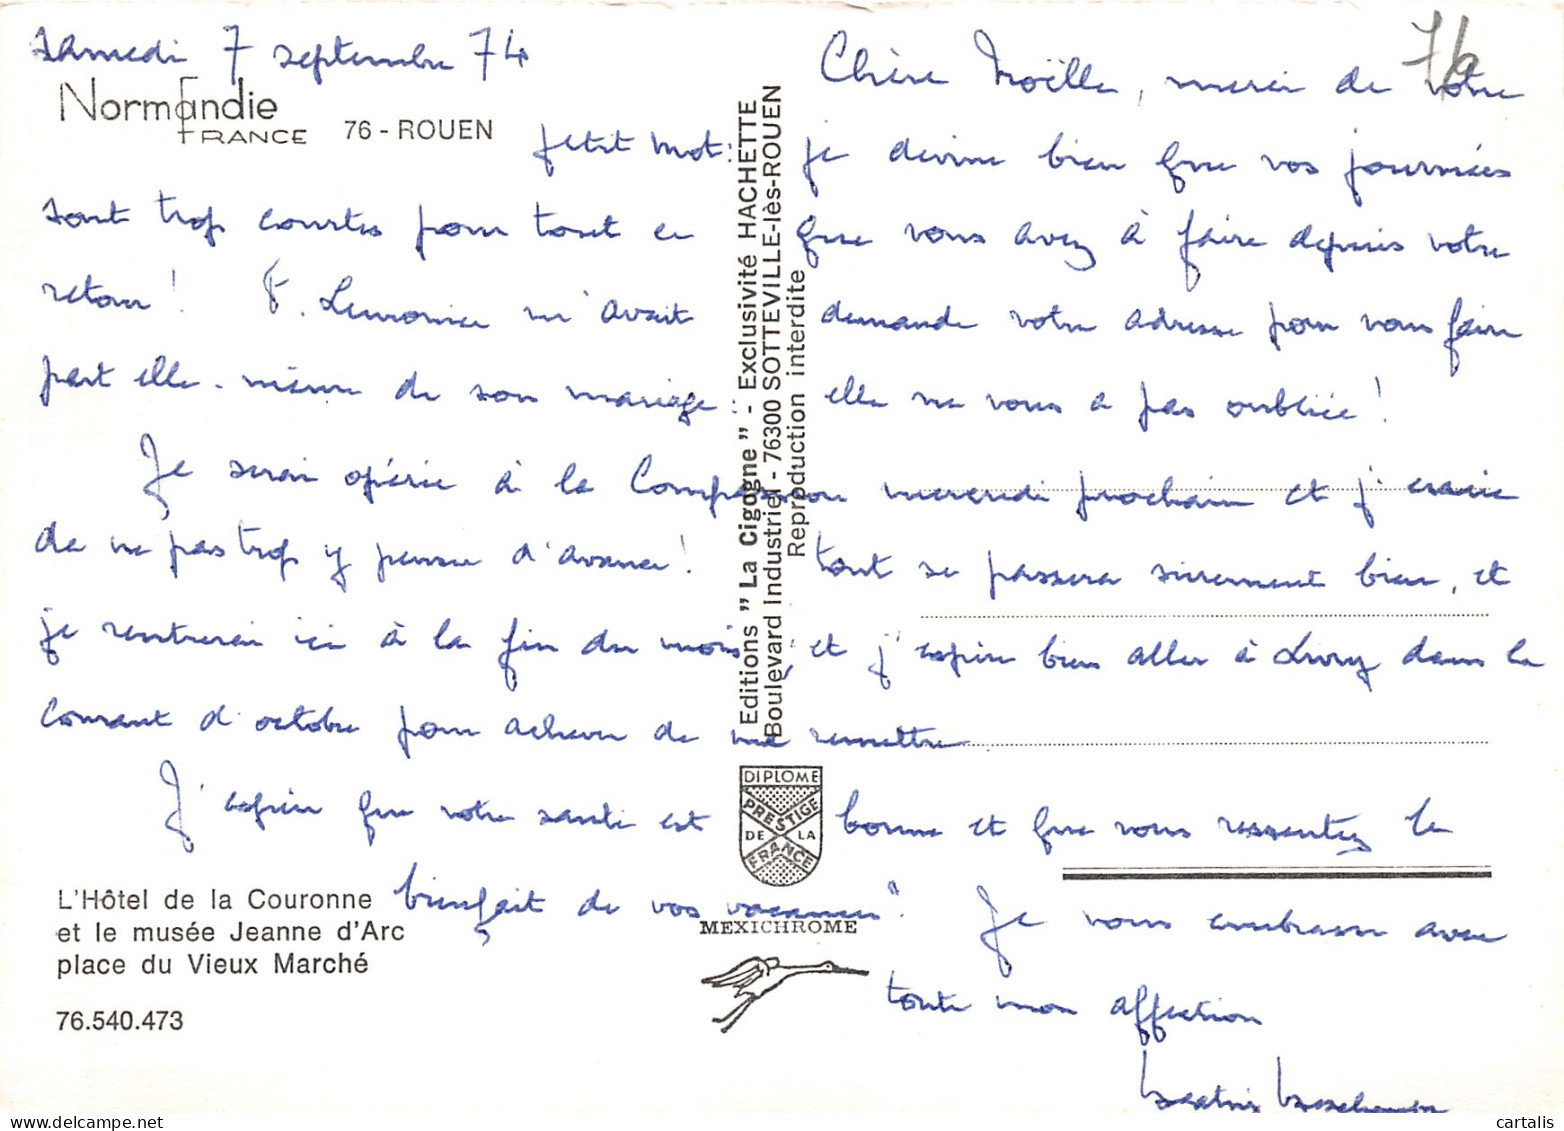 samedi 7 septembre 74
Chère Noëlle, merci de votre
7/9
Normandie
FRANCE
76 - ROUEN
petit mot : je devine bien que vos journées
sont trop courtes pour tout ce que vous avez à faire depuis votre
retour ! F. Lemonier m'avait demandé votre adresse pour vous faire
part elle-même de son mariage : elle ne vous a pas oubliée !
Je serai opérée à la Compassion mercredi prochain et j'essaie
de ne pas trop y penser d'avance ! tout se passera sûrement bien, et
je rentrerai ici à la fin du mois ; et j'espère bien aller à Livry dans le
courant d'octobre pour achever de me remettre
J'espère que votre santé est bonne et que vous ressentez le
bienfait de vos vacances". Je vous embrasse avec
toute mon affection
Béatrix
Editions "La Cigogne" - Exclusivité HACHETTE
Boulevard Industriel - 76300 SOTTEVILLE-lès-ROUEN
Reproduction interdite
DIPLOME
PRESTIGE
DE LA
FRANCE
MEXICHROME
L'Hôtel de la Couronne
et le musée Jeanne d'Arc
place du Vieux Marché
76.540.473
cartalis
www.delcampe.net